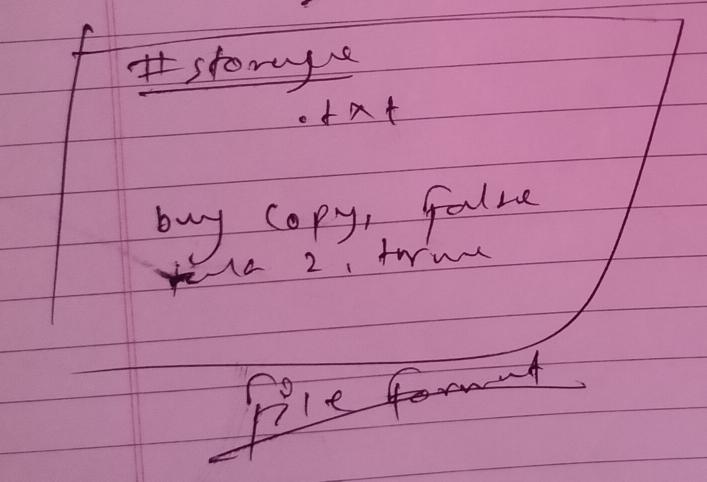 #storage
.txt
buy copy, false
2, true
file format